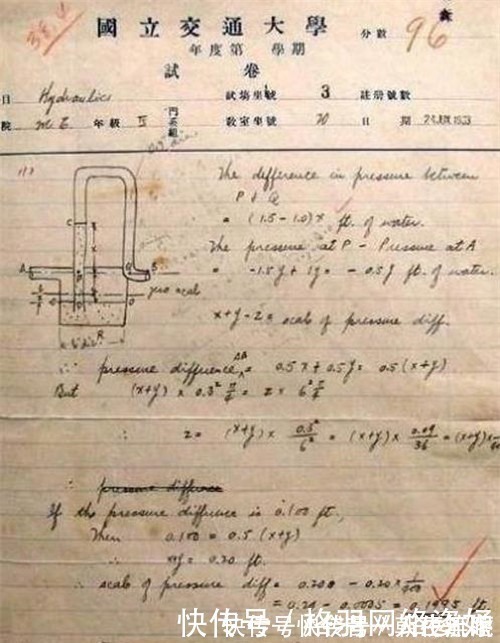 國立交通大學
年度第 學期
分數 96
試卷
日 Hydraulics 試場坐號 3 註册號數
院 M E 年級 IV 教室坐號 70 日期 24 JUN 1933
The difference in pressure between
P & Q
= (1.5 - 1.0)x ft. of water.
The pressure at P - Pressure at A
= -1.5y + 1y = -0.5y ft. of water.
C
A
B
zero scale
R
6" dia
x+y-z = scale of pressure diff.
∴ pressure difference AB = 0.5x + 0.5y = 0.5(x+y)
But (x+y) × 0.3² π/4 = z × 6² π/4
∴ z = (x+y) × 0.3²/6² = (x+y) × 0.09/36 = (x+y)×
∴ pressure difference
If the pressure difference is 0.100 ft,
Then 0.100 = 0.5 (x+y)
∴ x+y = 0.20 ft.
∴ scale of pressure diff = 0.200 - 0.20 × 1/400
= 0.20 - 0.0005 =
快传号